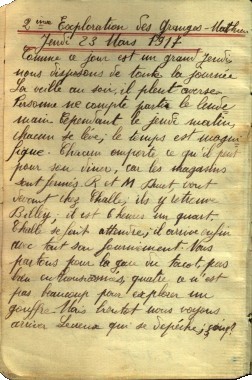 2ème Exploration des Granges-Mathieu
Jeudi 23 Mars 1917
Comme ce jour est un grand Jeudi
nous disposons de toute la journée
La veille au soir, il pleut averse
Personne ne compte partir le lende
main Cependant le jeudi matin,
chacun se lève, le temps est magni
fique. Chacun emporte ce qu'il peut
pour son dîner, car les magasins
sont fermés. R et M Duet vont
devant chez Thalle; ils y retrouvent
Billey; il est 6 heures un quart.
Thalle se fait attendre; il arrive enfin
avec tout son fourniment. Nous
partons pour la gare du tacot, pas
bien nombreux, quatre ce n'est
pas beaucoup pour explorer un
gouffre. Mais bientôt nous voyons
arriver qui se dépêche;